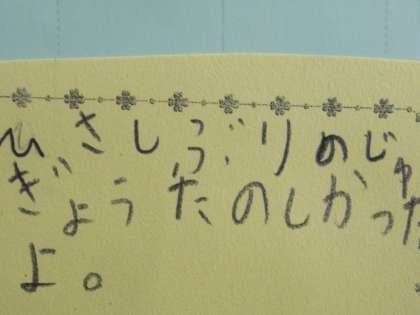 ひさしぶりのじゅ
ぎょうたのしかった
よ。